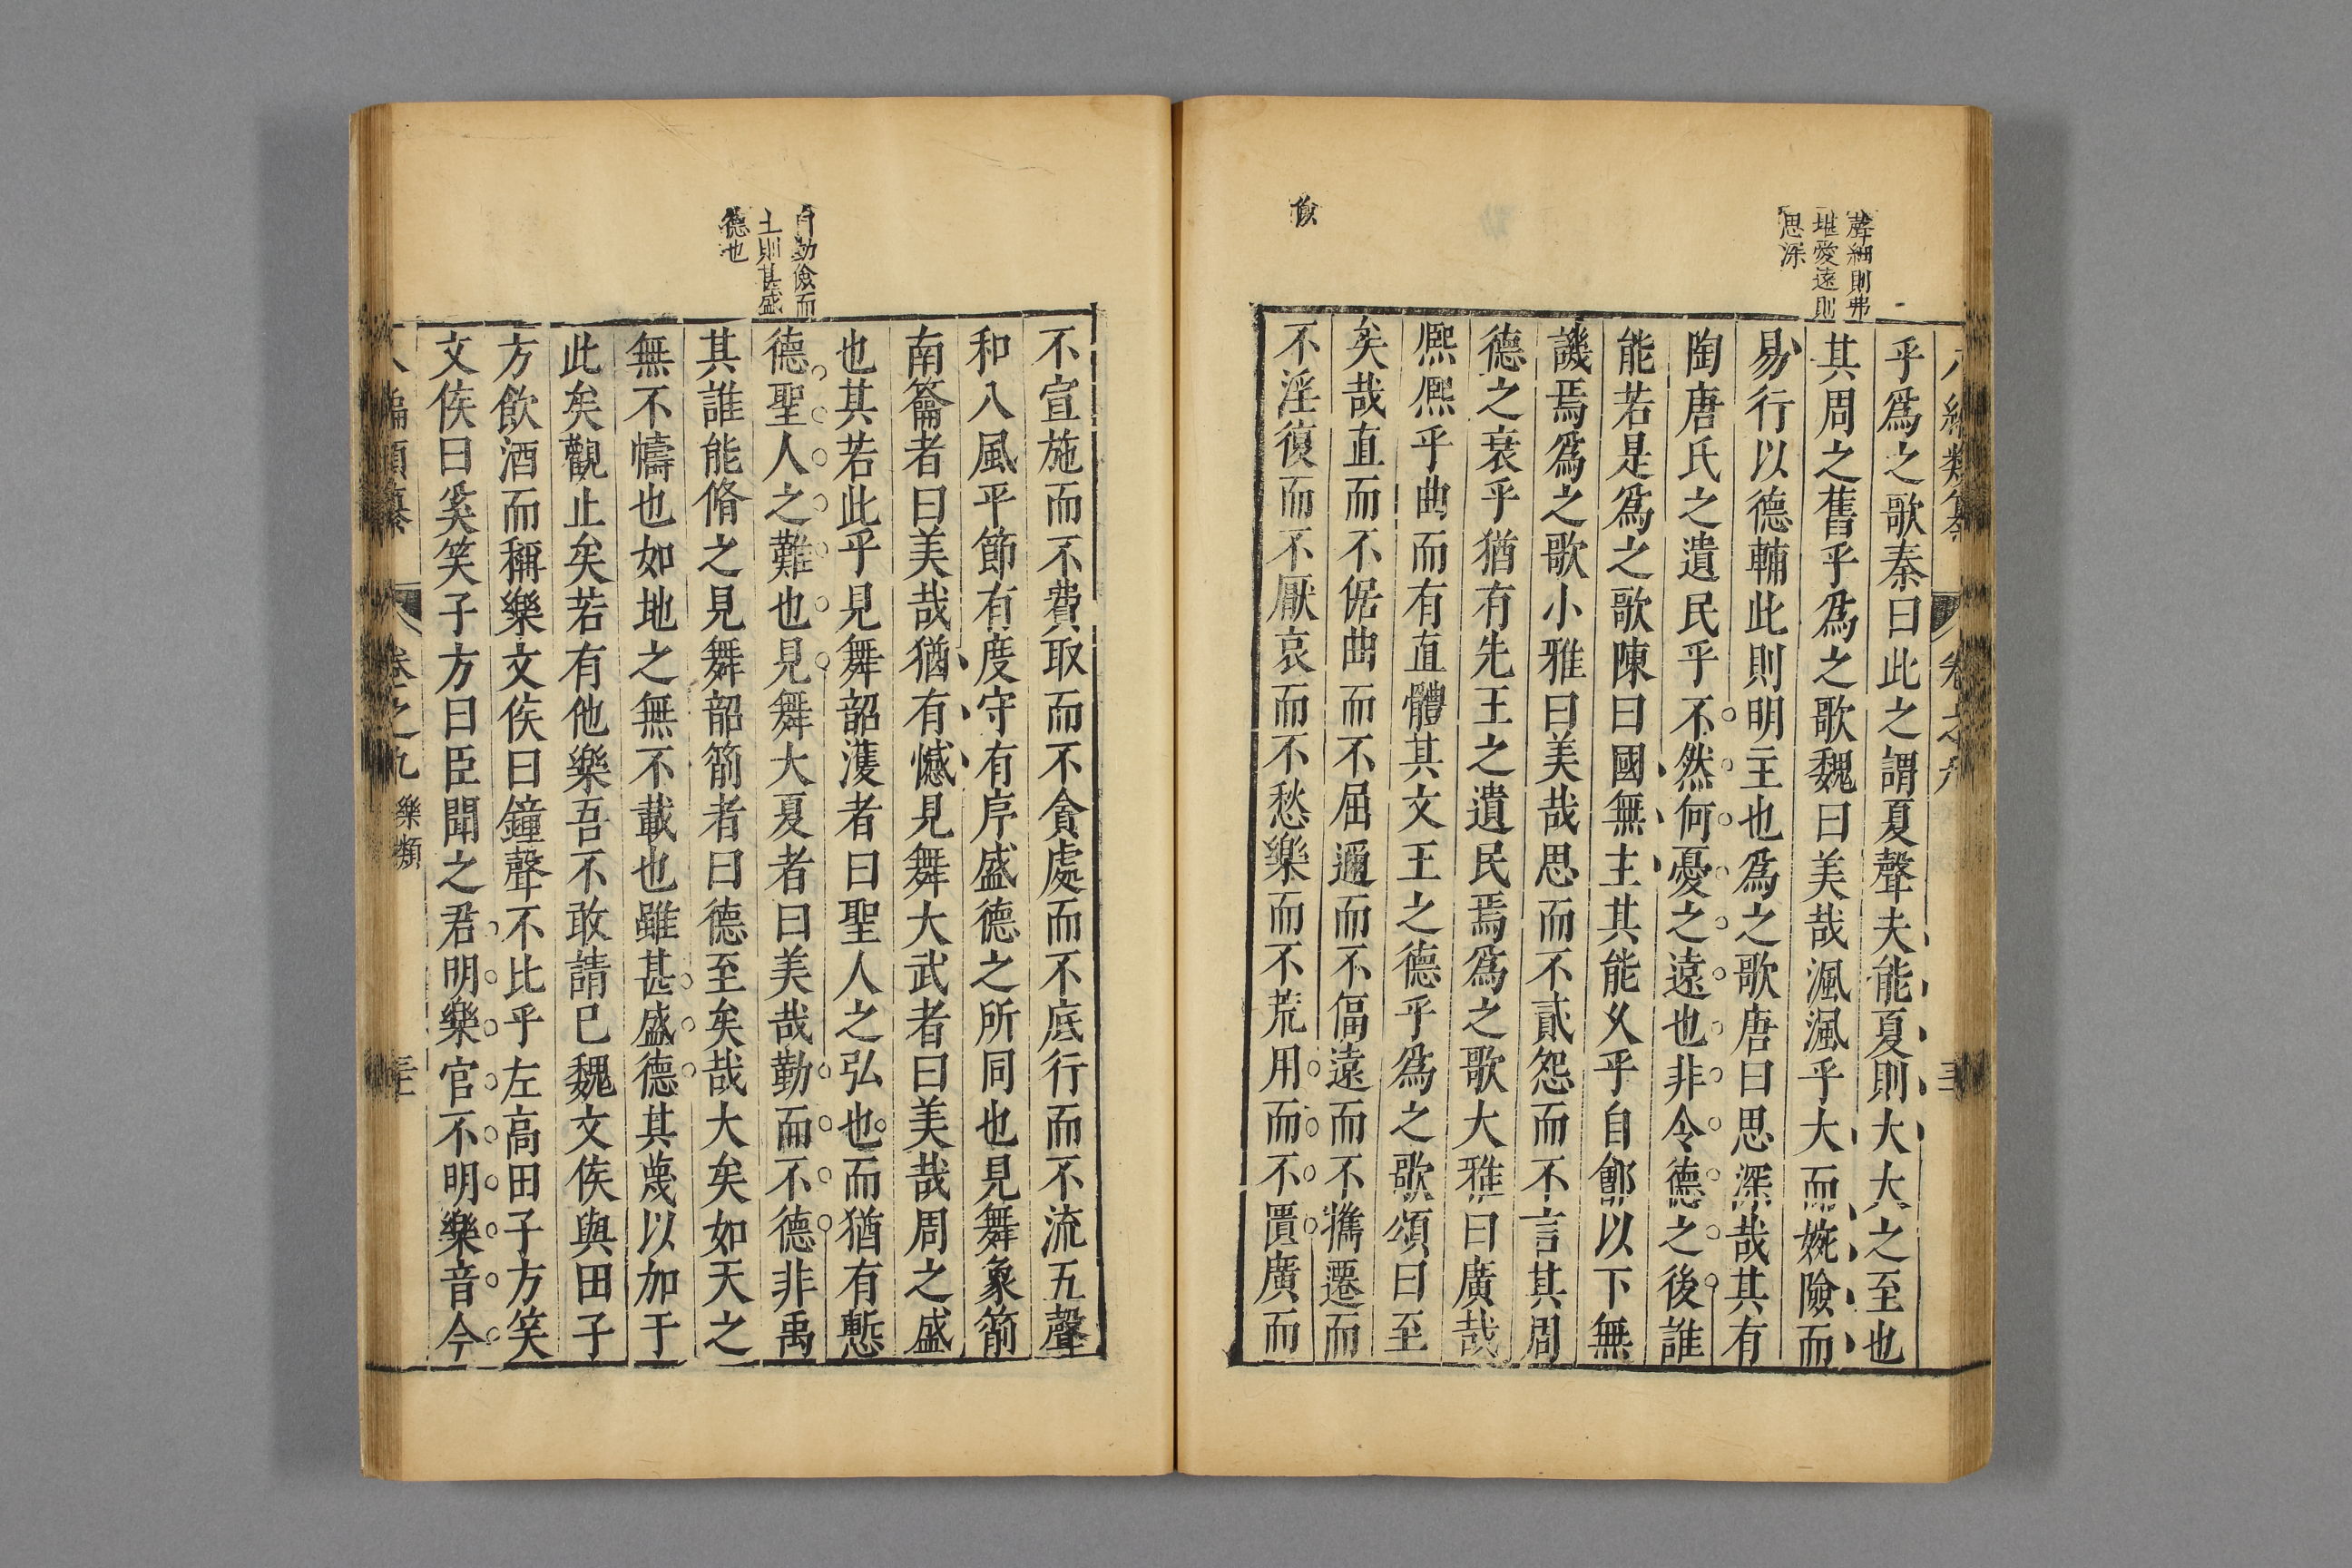 聲細則弗
堪愛遠則
思深
儉
乎爲之歌秦曰此之謂夏聲夫能夏則大大之至也
其周之舊乎爲之歌魏曰美哉渢渢乎大而婉險而
易行以德輔此則明主也爲之歌唐曰思深哉其有
陶唐氏之遺民乎不然何憂之遠也非令德之後誰
能若是爲之歌陳曰國無主其能久乎自鄶以下無
譏焉爲之歌小雅曰美哉思而不貳怨而不言其周
德之衰乎猶有先王之遺民焉爲之歌大雅曰廣哉
熈熈乎曲而有直體其文王之德乎爲之歌頌曰至
矣哉直而不倨曲而不屈邇而不偪遠而不攜遷而
不淫復而不厭哀而不愁樂而不荒用而不匱廣而
勤儉而
土則甚盛
德也
不宣施而不費取而不貪處而不底行而不流五聲
和八風平節有度守有序盛德之所同也見舞象箾
南籥者曰美哉猶有憾見舞大武者曰美哉周之盛
也其若此乎見舞韶濩者曰聖人之弘也而猶有慙
德聖人之難也見舞大夏者曰美哉勤而不德非禹
其誰能脩之見舞韶箾者曰德至矣哉大矣如天之
無不幬也如地之無不載也雖甚盛德其蔑以加于
此矣觀止矣若有他樂吾不敢請已魏文侯與田子
方飲酒而稱樂文侯曰鐘聲不比乎左高田子方笑
文侯曰奚笑子方曰臣聞之君明樂官不明樂音今
八編類纂 卷之九 樂類